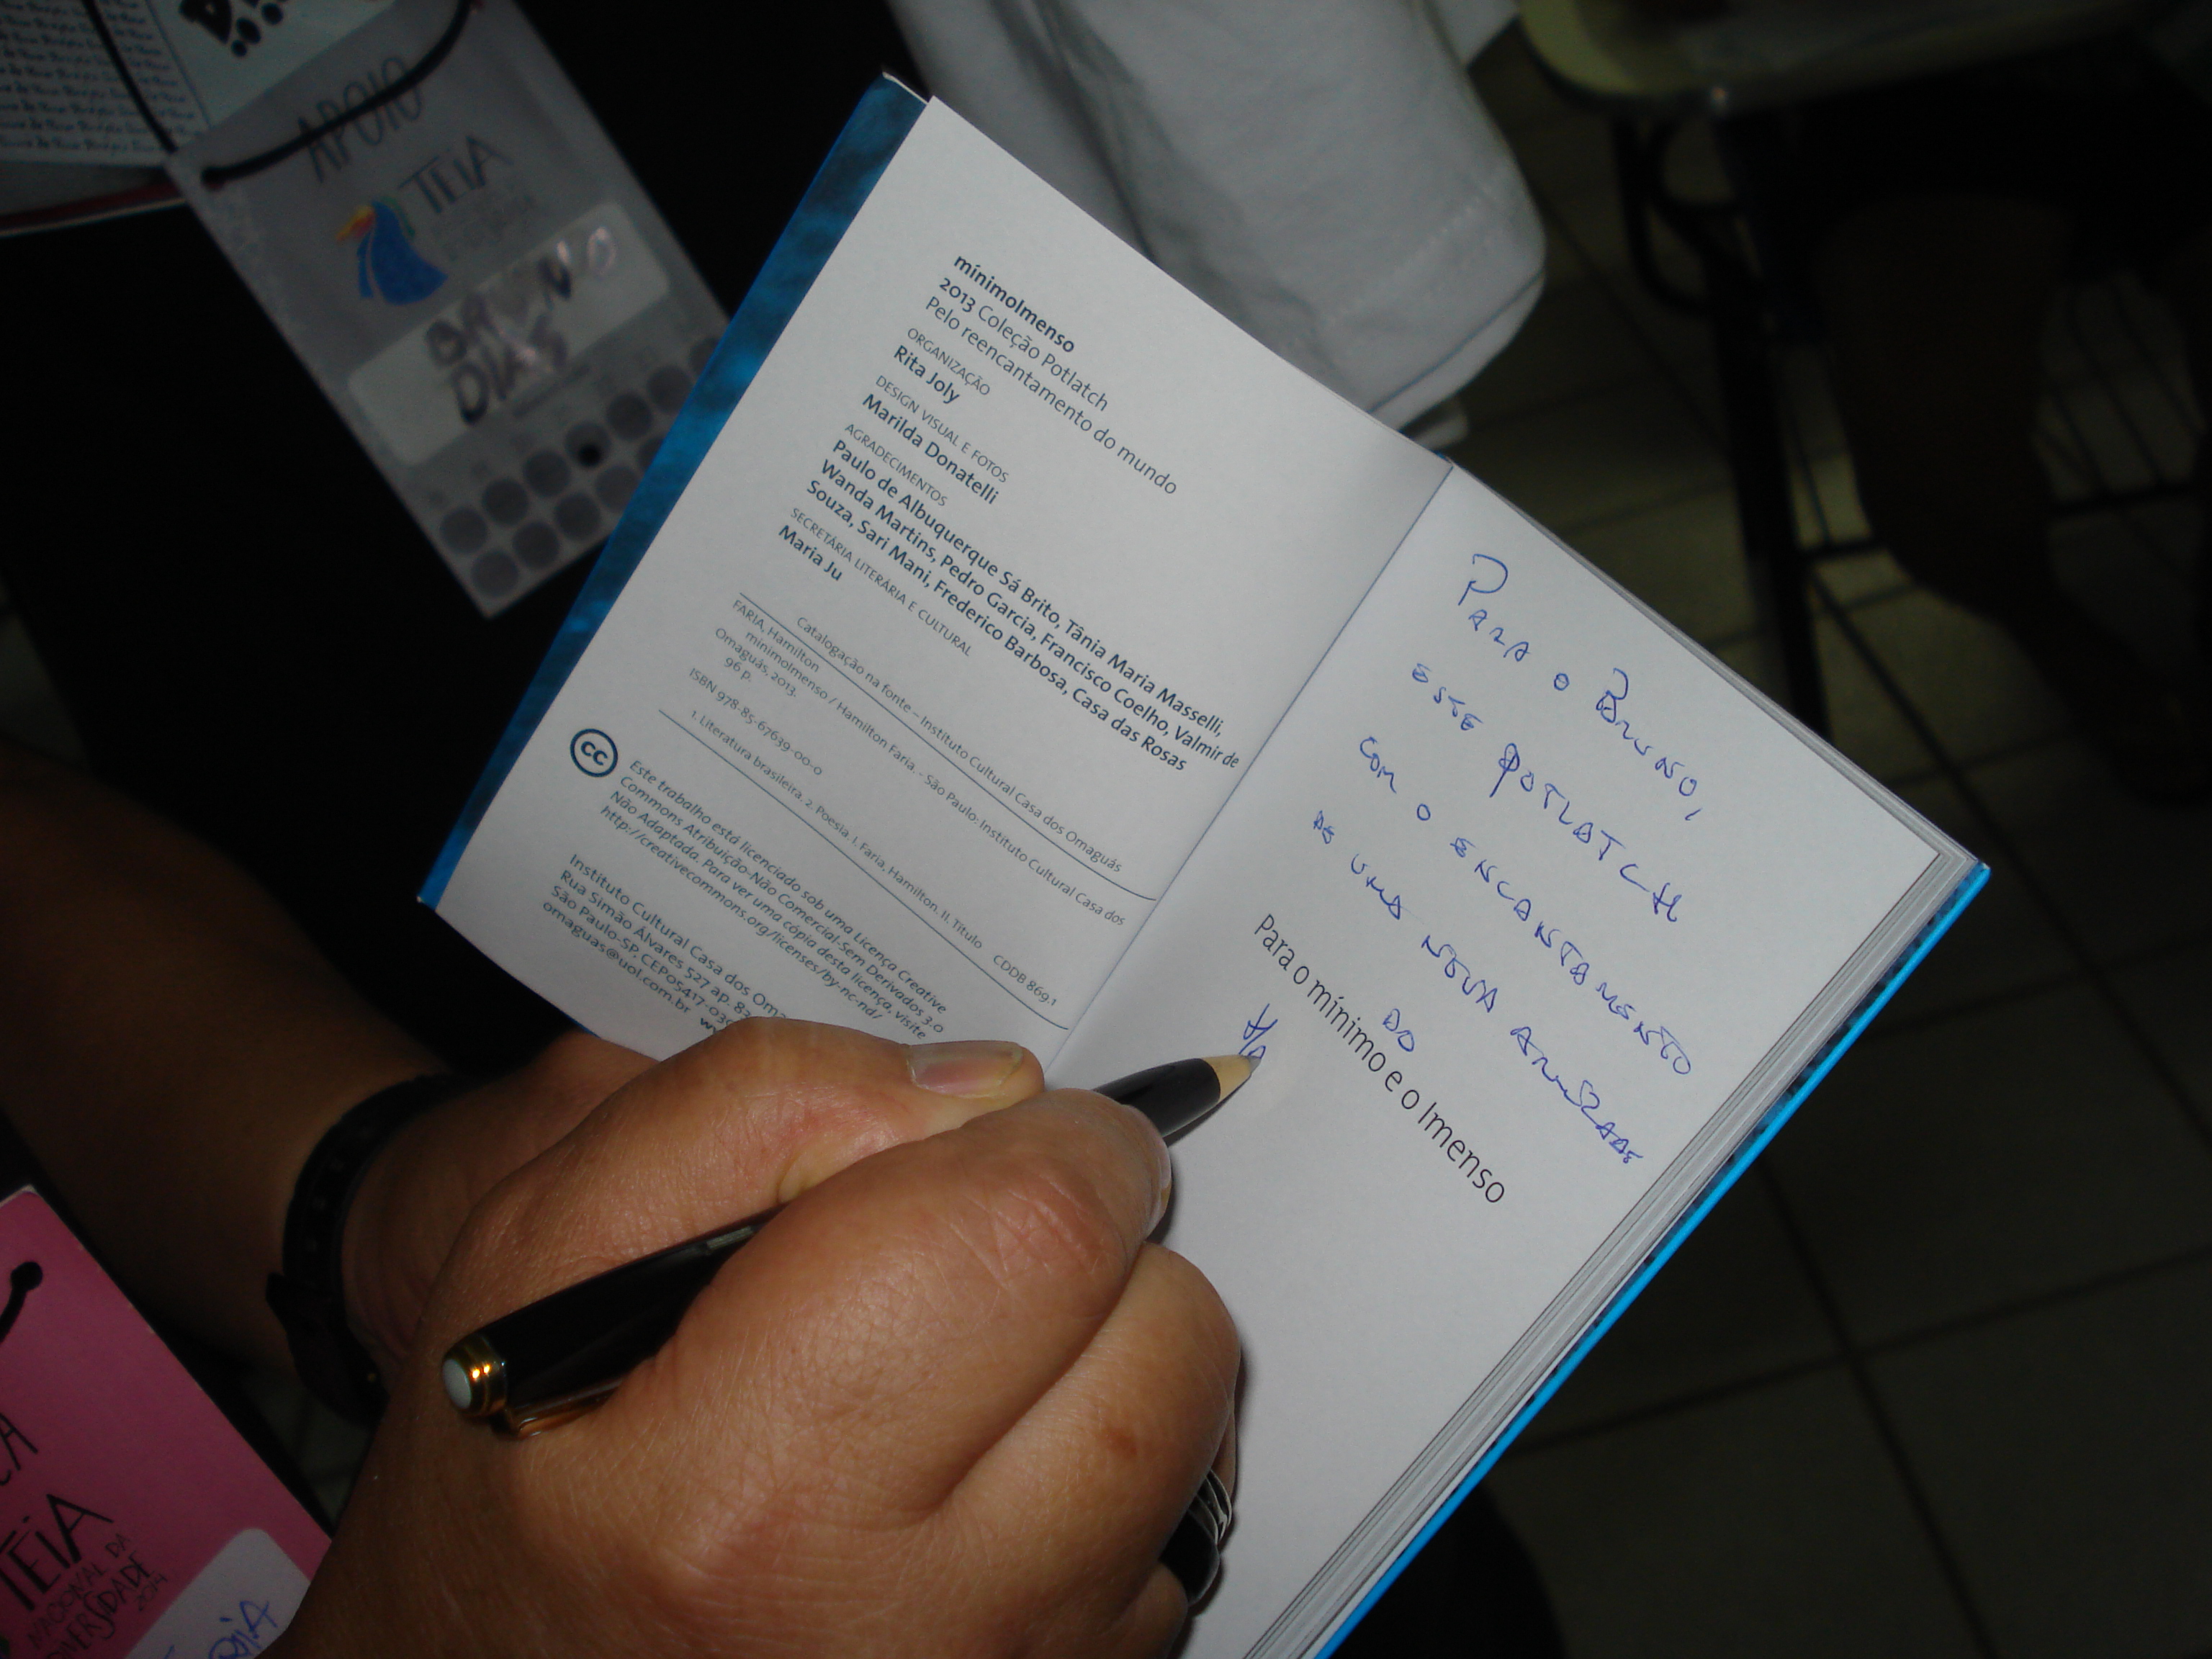 APOIO
TEIA
BRUNO
DIAS
mínimoImenso
2013 Coleção Potlatch
Pelo reencantamento do mundo
ORGANIZAÇÃO
Rita Joly
DESIGN VISUAL E FOTOS
Marilda Donatelli
AGRADECIMENTOS
Paulo de Albuquerque Sá Brito, Tânia Maria Masselli,
Wanda Martins, Pedro Garcia, Francisco Coelho, Valmir de
Souza, Sari Mani, Frederico Barbosa, Casa das Rosas
SECRETÁRIA LITERÁRIA E CULTURAL
Maria Ju
Catalogação na fonte – Instituto Cultural Casa dos Omaguás
FARIA, Hamilton
mínimoImenso / Hamilton Faria. - São Paulo: Instituto Cultural Casa dos
Omaguás, 2013.
96 p.
ISBN 978-85-67639-00-0
1. Literatura brasileira. 2. Poesia I. Faria, Hamilton. II. Título CDDB 869.1
cc
Este trabalho está licenciado sob uma Licença Creative
Commons Atribuição-Não Comercial-Sem Derivados 3.0
Não Adaptada. Para ver uma cópia desta licença, visite
http://creativecommons.org/licenses/by-nc-nd/
Instituto Cultural Casa dos Oma
Rua Simão Álvares 527 ap. 83
São Paulo-SP, CEP05417-030
omaguas@uol.com.br
PARA O BRUNO,
ESTE POTLATCH
COM O ENCANTAMENTO
DE UMA NOVA AMIZADE
DO
Para o mínimo e o Imenso
TEIA
NACIONAL DA
DIVERSIDADE
2014